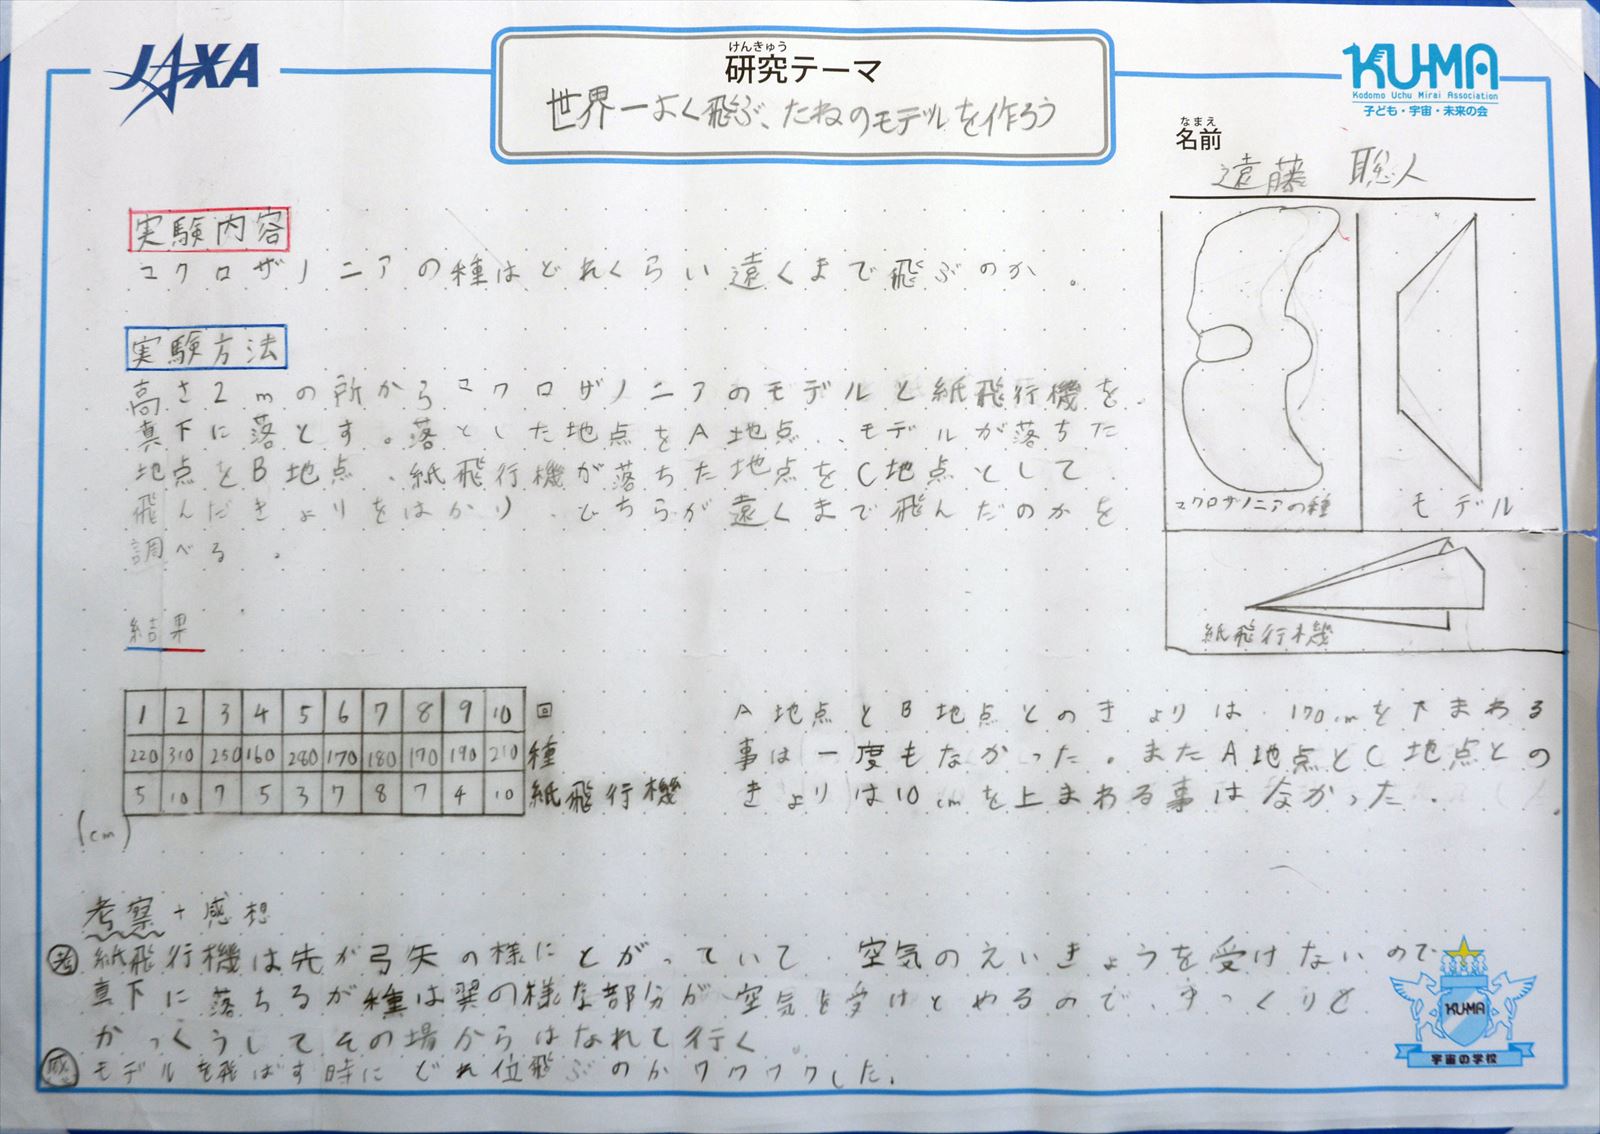 JAXA
けんきゅう
研究テーマ
世界一よく飛ぶ、たねのモデルを作ろう
KU-MA
Kodomo Uchu Mirai Association
子ども・宇宙・未来の会
なまえ
名前
遠藤 聡人
実験内容
マクロザノニアの種はどれくらい遠くまで飛ぶのか。
実験方法
高さ2mの所からマクロザノニアのモデルと紙飛行機を、
真下に落とす。落とした地点をA地点、モデルが落ちた
地点をB地点、紙飛行機が落ちた地点をC地点として
飛んだきょりをはかり、どちらが遠くまで飛んだのかを
調べる。
マクロザノニアの種
モデル
紙飛行機
結果
1 2 3 4 5 6 7 8 9 10 回
220 310 250 160 280 170 180 170 190 210 種
5 10 7 5 3 7 8 7 4 10 紙飛行機
(cm)
A地点とB地点とのきょりは、170cmを下まわる
事は一度もなかった。またA地点とC地点との
きょりは10cmを上まわる事はなかった。
考察+感想
考 紙飛行機は先が弓矢の様にとがっていて、空気のえいきょうを受けないので
真下に落ちるが種は翼の様な部分が、空気を受けとめるので、ゆっくりと
かっくうしてその場からはなれて行く。
感 モデルを飛ばす時にどれ位飛ぶのかワクワクした。
KU-MA
宇宙の学校